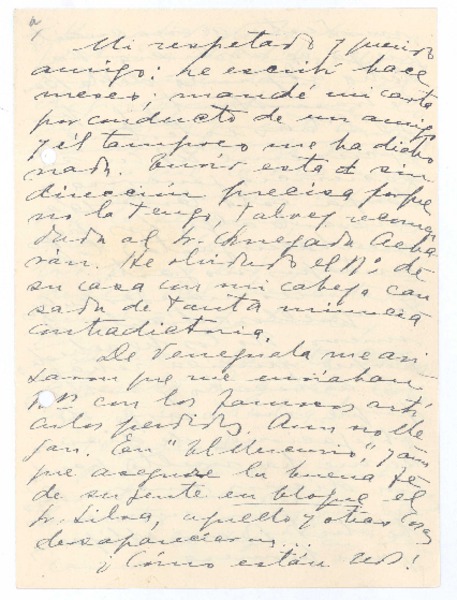 Mi respetado y querido
amigo: le escribí hace
meses; mandé mi carta
por conducto de un amigo
y él tampoco me ha dicho
nada. Envío esta sin
dirección precisa porque
no la tengo, talvez recomen
dada al Sr.
He olvidado el Nº de
su casa con mi cabeza can
sada de tanta minucia
contradictoria.
De Venezuela me avi
saron que me enviaban
con los famosos artí
culos perdidos. Aun no lle
gan. En "El Mercurio", y aun
que asegure la buena fe
de su gente en bloque el
Sr. Silva, aquello y otras cosas
desaparecieron...
¿Cómo están Uds!